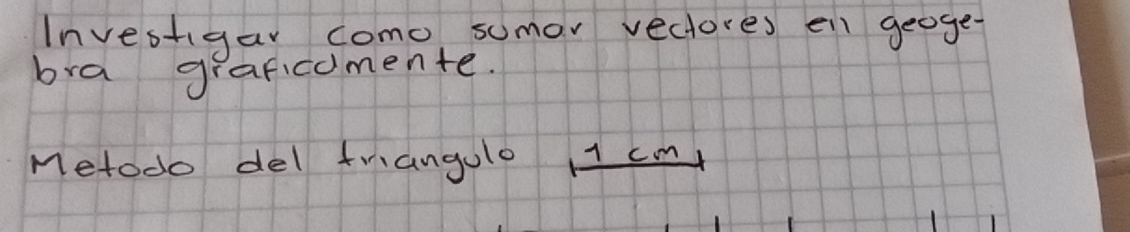 Investigar como sumar vectores en geoge-
bra graficamente.
Metodo del triangulo 1 cm